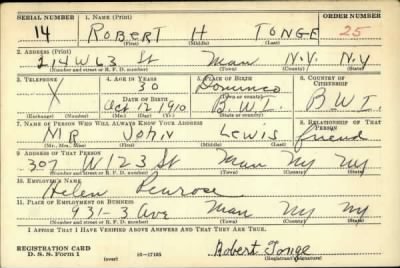 SERIAL NUMBER 1. NAME (Print) ORDER NUMBER
14 ROBERT H TONGE 25
(First) (Middle) (Last)
2. ADDRESS (Print)
214 W 63 St Man N.Y. N.Y
(Number and street or R. F. D. number) (Town) (County) (State)
3. TELEPHONE 4. AGE IN YEARS 5. PLACE OF BIRTH 6. COUNTRY OF CITIZENSHIP
X 30 Dominica
DATE OF BIRTH (Town or county)
Oct 12 1910 B.W.I. B.W.I.
(Exchange) (Number) (Mo.) (Day) (Yr.) (State or country)
7. NAME OF PERSON WHO WILL ALWAYS KNOW YOUR ADDRESS 8. RELATIONSHIP OF THAT PERSON
MR JOHN Lewis friend
(Mr., Mrs., Miss) (First) (Middle) (Last)
9. ADDRESS OF THAT PERSON
307 W 123 St Man NY NY
(Number and street or R. F. D. number) (Town) (County) (State)
10. EMPLOYER'S NAME
Helen Penrose
11. PLACE OF EMPLOYMENT OR BUSINESS
931-3 Ave Man NY NY
(Number and street or R. F. D. number) (Town) (County) (State)
I AFFIRM THAT I HAVE VERIFIED ABOVE ANSWERS AND THAT THEY ARE TRUE.
REGISTRATION CARD
D. S. S. Form 1 (over) 16—17105
Robert Tonge
(Registrant's signature)